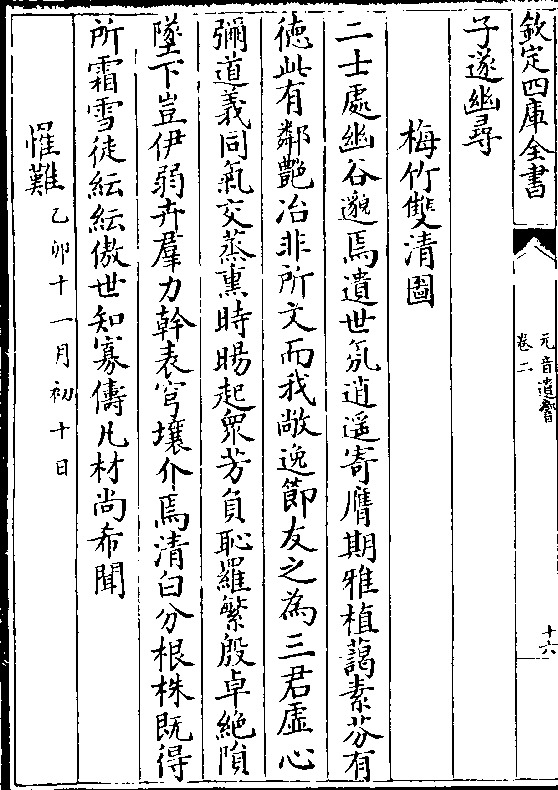 欽定四庫全書
元音遺響
卷二
十六
子遂幽尋
梅竹雙清圖
二士處幽谷邈焉遺世氛逍遥寄膺期雅植藹素芬有
徳此有鄰艷冶非所文而我敞逸節友之為三君虛心
彌道義同氣交蒸熏時暘起衆芳負恥羅繁殷卓絶隕
墜下豈伊弱卉羣力幹表穹壤介焉清白分根株既得
所霜雪徒紜紜傲世知寡儔凡材尚希聞
罹難乙卯十一月初十日